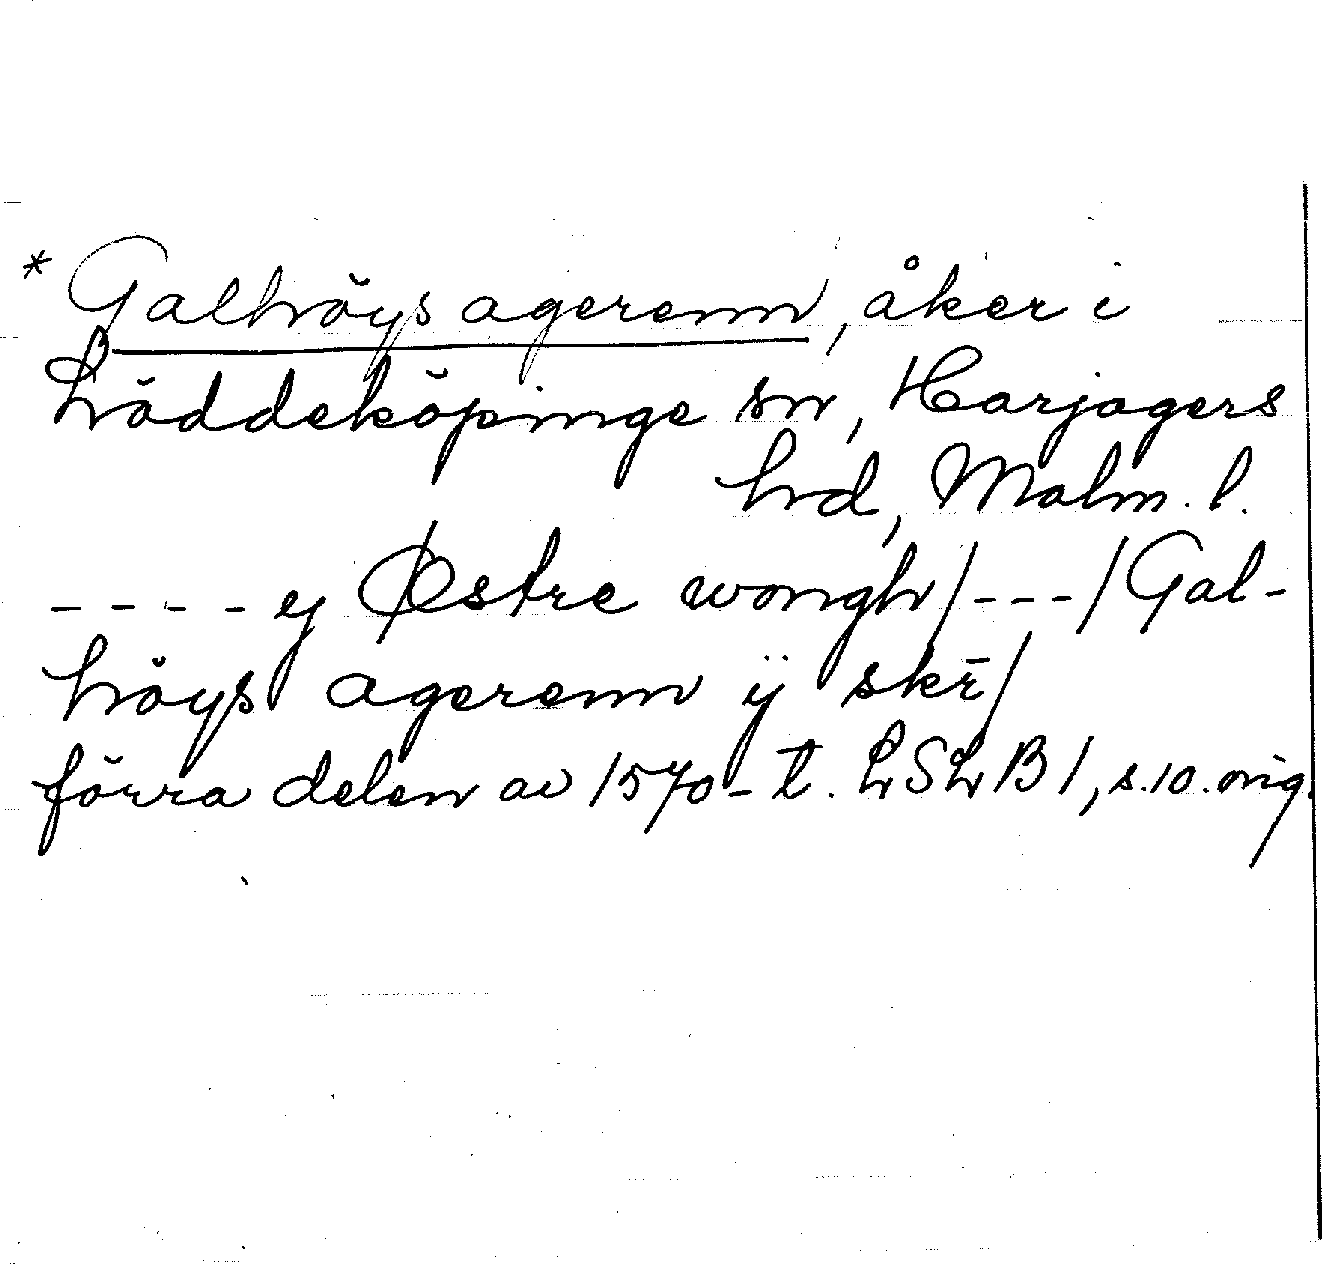 * Galhöys agerenn, åker i
Löddeköpinge sn, Harjagers
hrd, Malm. l.
- - - - ej Østre wongh/ - - - / Gal-
höys agerenn ij skr̄/
förra delen av 1570-t. LSLB 1, s. 10. orig.